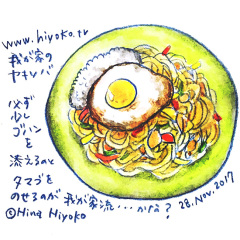 www.hiyoko.tv
我が家の
ヤキソバ
必ず
少し
ゴハン
を
添えるのと
タマゴを
のせるのが我が家流・・・かな?
28.Nov.2017
©Hina Hiyoko